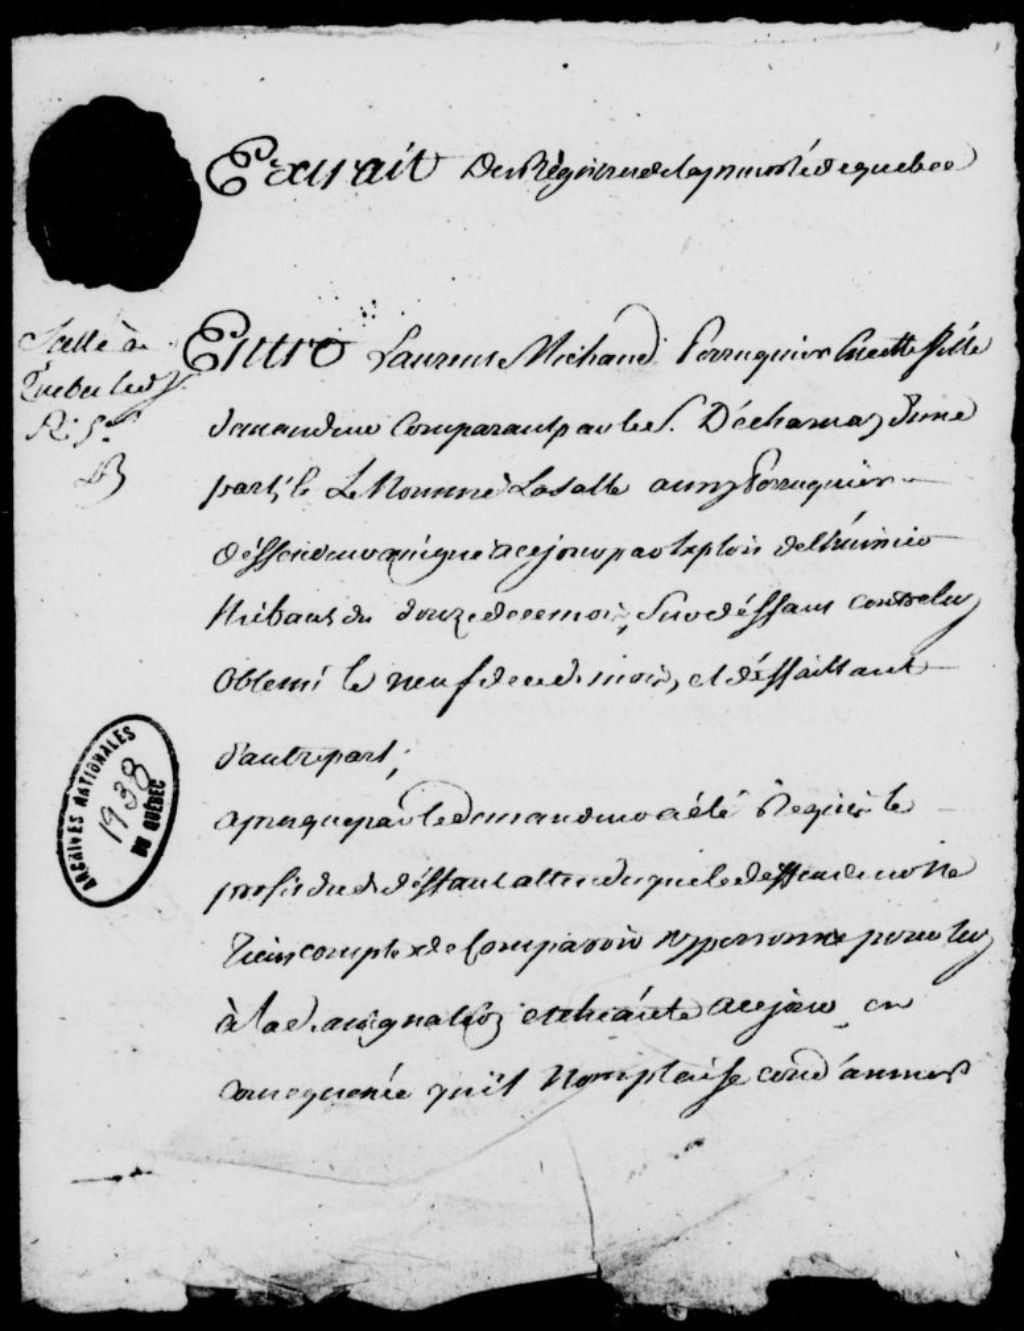 Extrait Des Régistres de la prevosté de quebec
Scellé à
Quebec lesd. J.
R. 5s.
Entre Laurens Michaud Perruquier En cette Ville
demandeur Comparant par le S. Décharnay d'une
part, & Le Nommé Lasalle aussy Perruquier
déffendeur assigné a ce jour par Exploit de l'huissier
thibault du douze de ce mois, Sur déffaut contre luy
Obtenu le neuf de ce d. mois, et déffaillant
d'autre part;
apres que par le demandeur a été Requis le
profit du d. déffaut attendu que le deffendeur ne
tient compte de Comparoir ny personne pour luy
à la d. assignation et écheante a ce jour, en
consequence qu'il Nous plaise condamner
ARCHIVES NATIONALES
1938
DU QUÉBEC